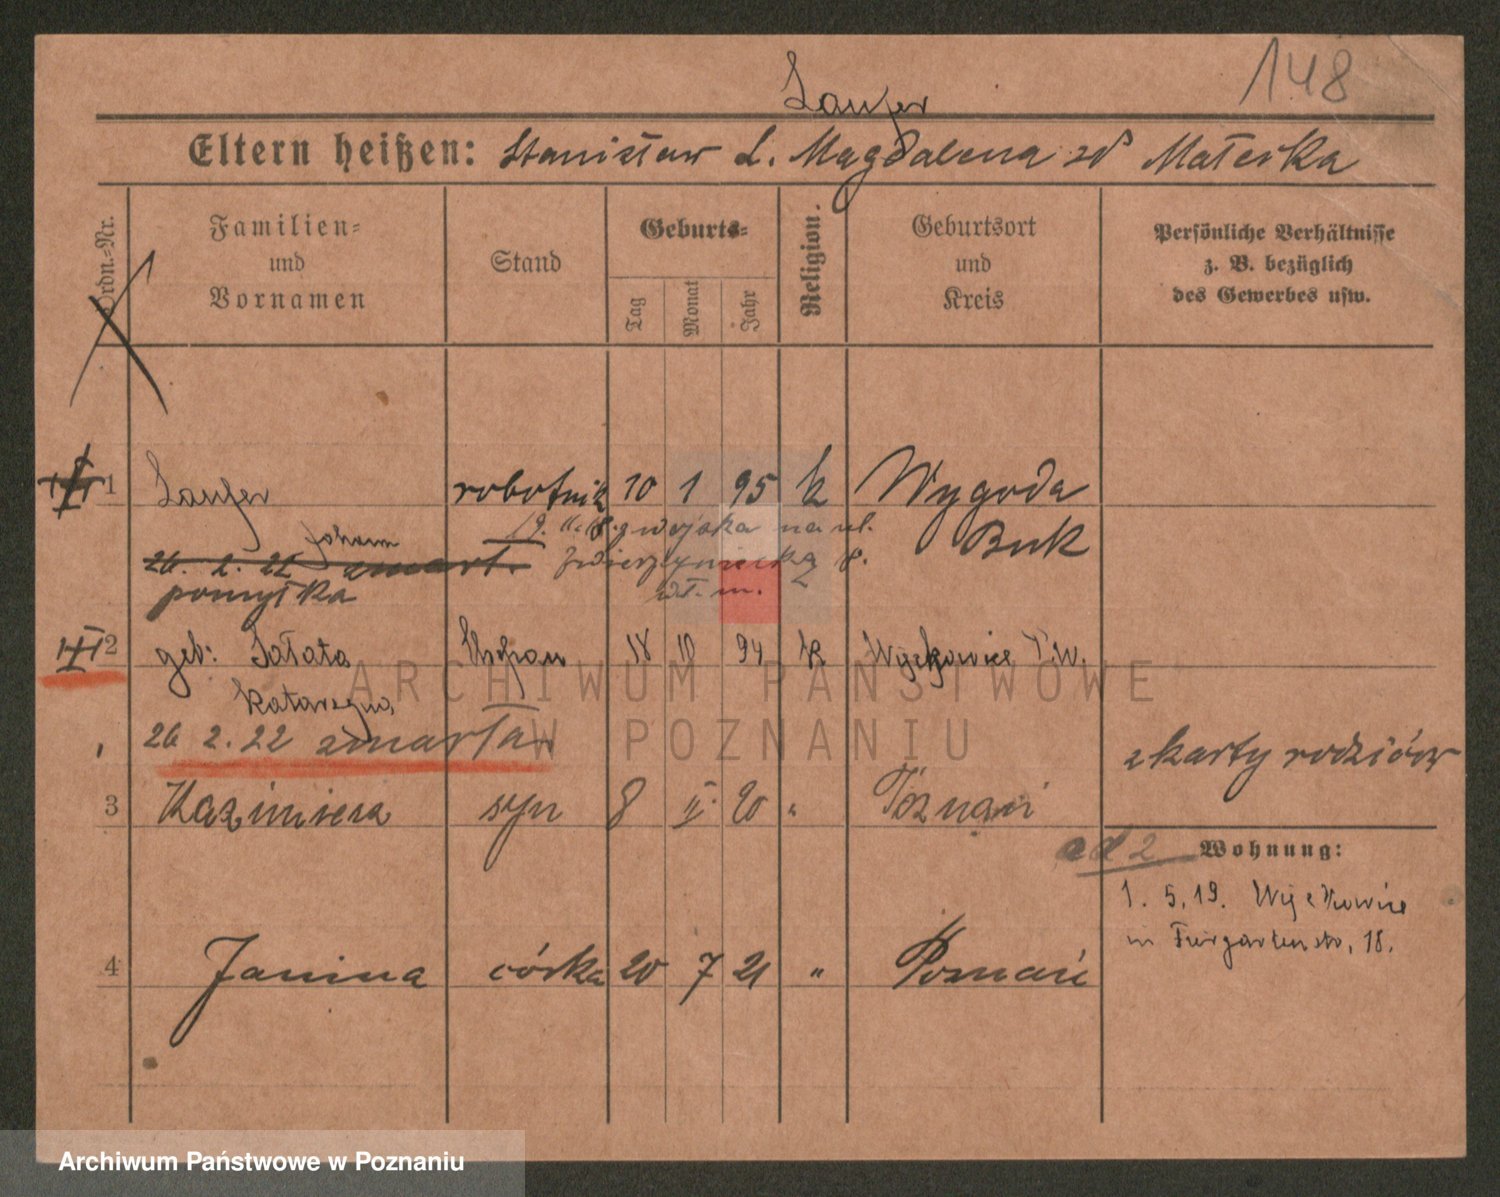 148
Laufer
Eltern heißen: Stanisław L. Magdalena zd Mateska
Ordn.-Nr.
Familien- und Vornamen
Stand
Geburts-
Tag
Monat
Jahr
Religion.
Geburtsort und Kreis
Persönliche Verhältnisse z. B. bezüglich des Gewerbes usw.
1 Laufer robotnik 10 1 95 k Wygoda
Johann
19. 11. 18. z wojska na ul. Buk
26. 2. 22 zmarł. Zwierzyniecką 8.
pomyłka wł. m.
2 geb: Sałata Ehefrau 18 10 94 k Wyckowice P.W.
Katarzyna
26 2. 22 zmarła
z karty rodziców
3 Kazimierz syn 8 II. 20 " Poznań
ad 2 Wohnung:
1. 5. 19. Wyckowice
in Tiergartenstr. 18.
4 Janina córka 20 7 21 " Poznań
ARCHIWUM PAŃSTWOWE
W POZNANIU
Archiwum Państwowe w Poznaniu